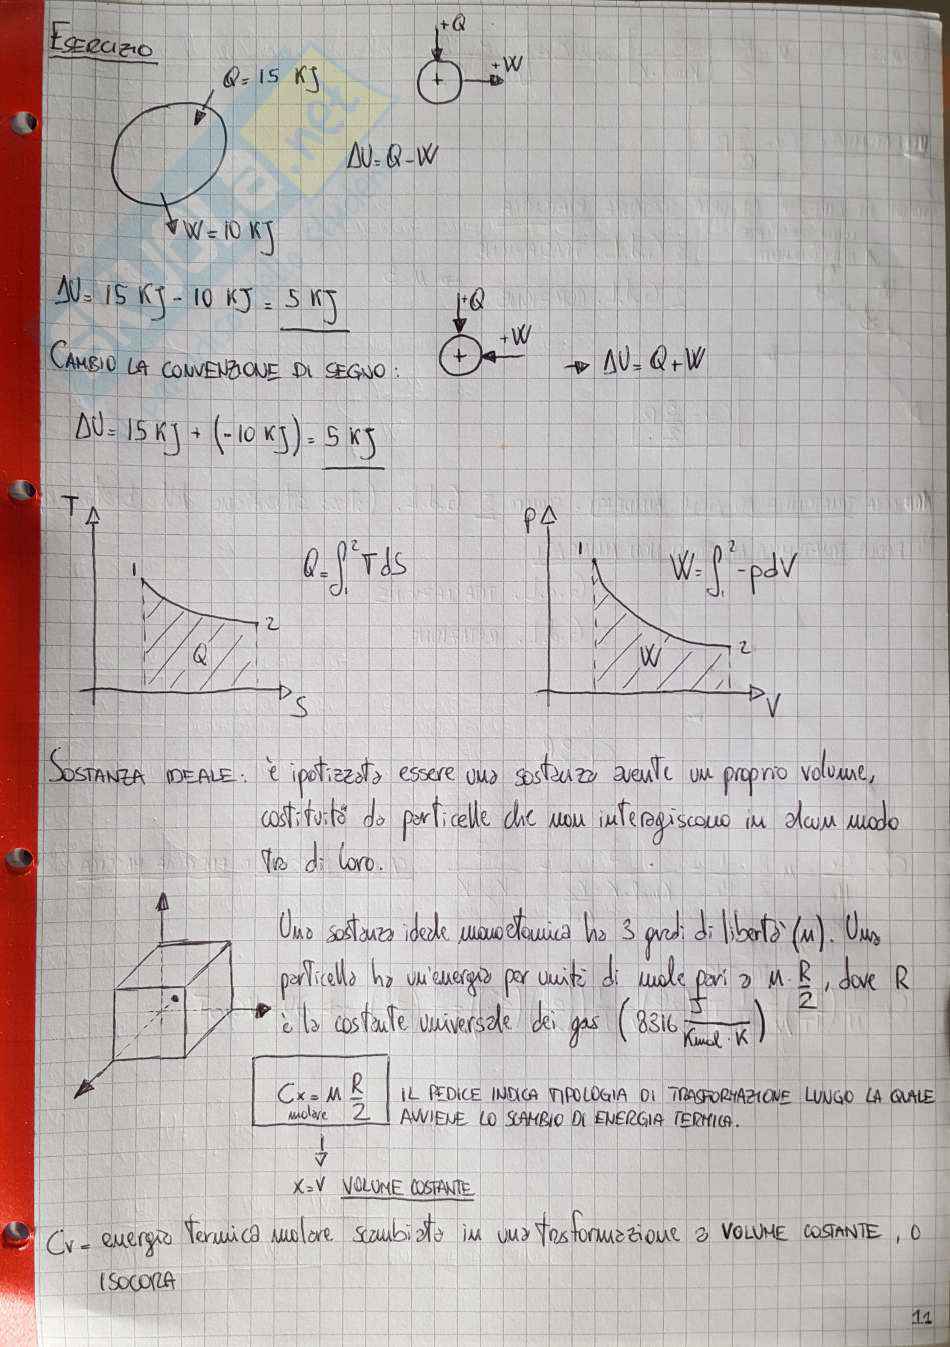 ESERCIZIO
+Q
+W
+
Q= 15 KJ
ΔU= Q-W
W= 10 KJ
ΔU= 15 KJ - 10 KJ = 5 KJ
+Q
+W
+
CAMBIO LA CONVENZIONE DI SEGNO:
→ ΔU= Q+W
ΔU= 15 KJ + (-10 KJ) = 5 KJ
T
1
2
Q
S
Q= ∫₁² T dS
P
1
2
W
V
W= ∫₁² -pdV
SOSTANZA IDEALE: è ipotizzata essere una sostanza avente un proprio volume,
costituita da particelle che non interagiscono in alcun modo
tra di loro.
Una sostanza ideale monoatomica ha 3 gradi di libertà (n). Una
particella ha un'energia per unità di mole pari a n·R/2, dove R
è la costante universale dei gas (8316 J/Kmol·K)
Cx = n R/2
molare
IL PEDICE INDICA TIPOLOGIA DI TRASFORMAZIONE LUNGO LA QUALE
AVVIENE LO SCAMBIO DI ENERGIA TERMICA.
x=V VOLUME COSTANTE
Cv = energia termica molare scambiata in una trasformazione a VOLUME COSTANTE, O
ISOCORA
11
SKUOLA.net